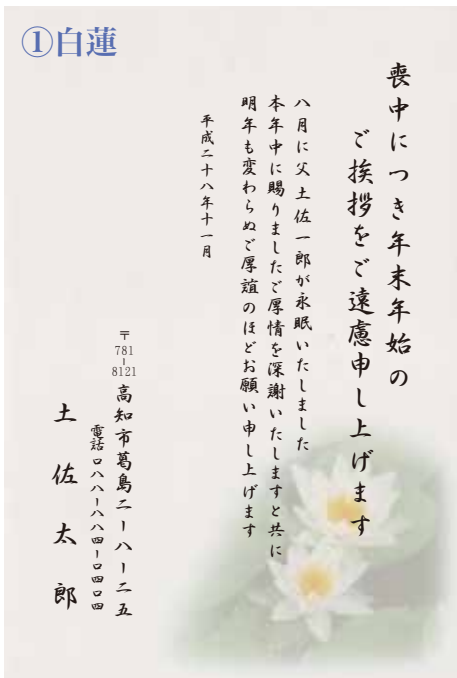 ①白蓮
喪中につき年末年始の
ご挨拶をご遠慮申し上げます
八月に父 土佐一郎が永眠いたしました
本年中に賜りましたご厚情を深謝いたしますと共に
明年も変わらぬご厚誼のほどお願い申し上げます
平成二十八年十一月
〒781-8121 高知市葛島二ー八ー二五
電話〇八八ー八八四ー〇四〇四
土佐太郎